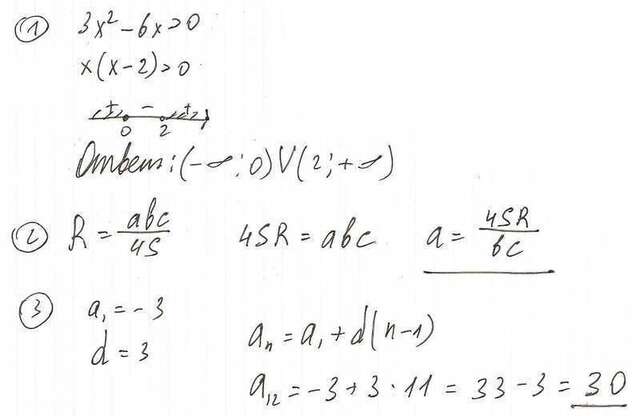 ① 3x² - 6x > 0
x(x - 2) > 0
+ - +
0 2
Ответ: (-∞; 0) V (2; +∞)
② R = abc/4S 4SR = abc a = 4SR/bc
③ a₁ = -3
d = 3
aₙ = a₁ + d(n-1)
a₁₂ = -3 + 3 · 11 = 33 - 3 = 30